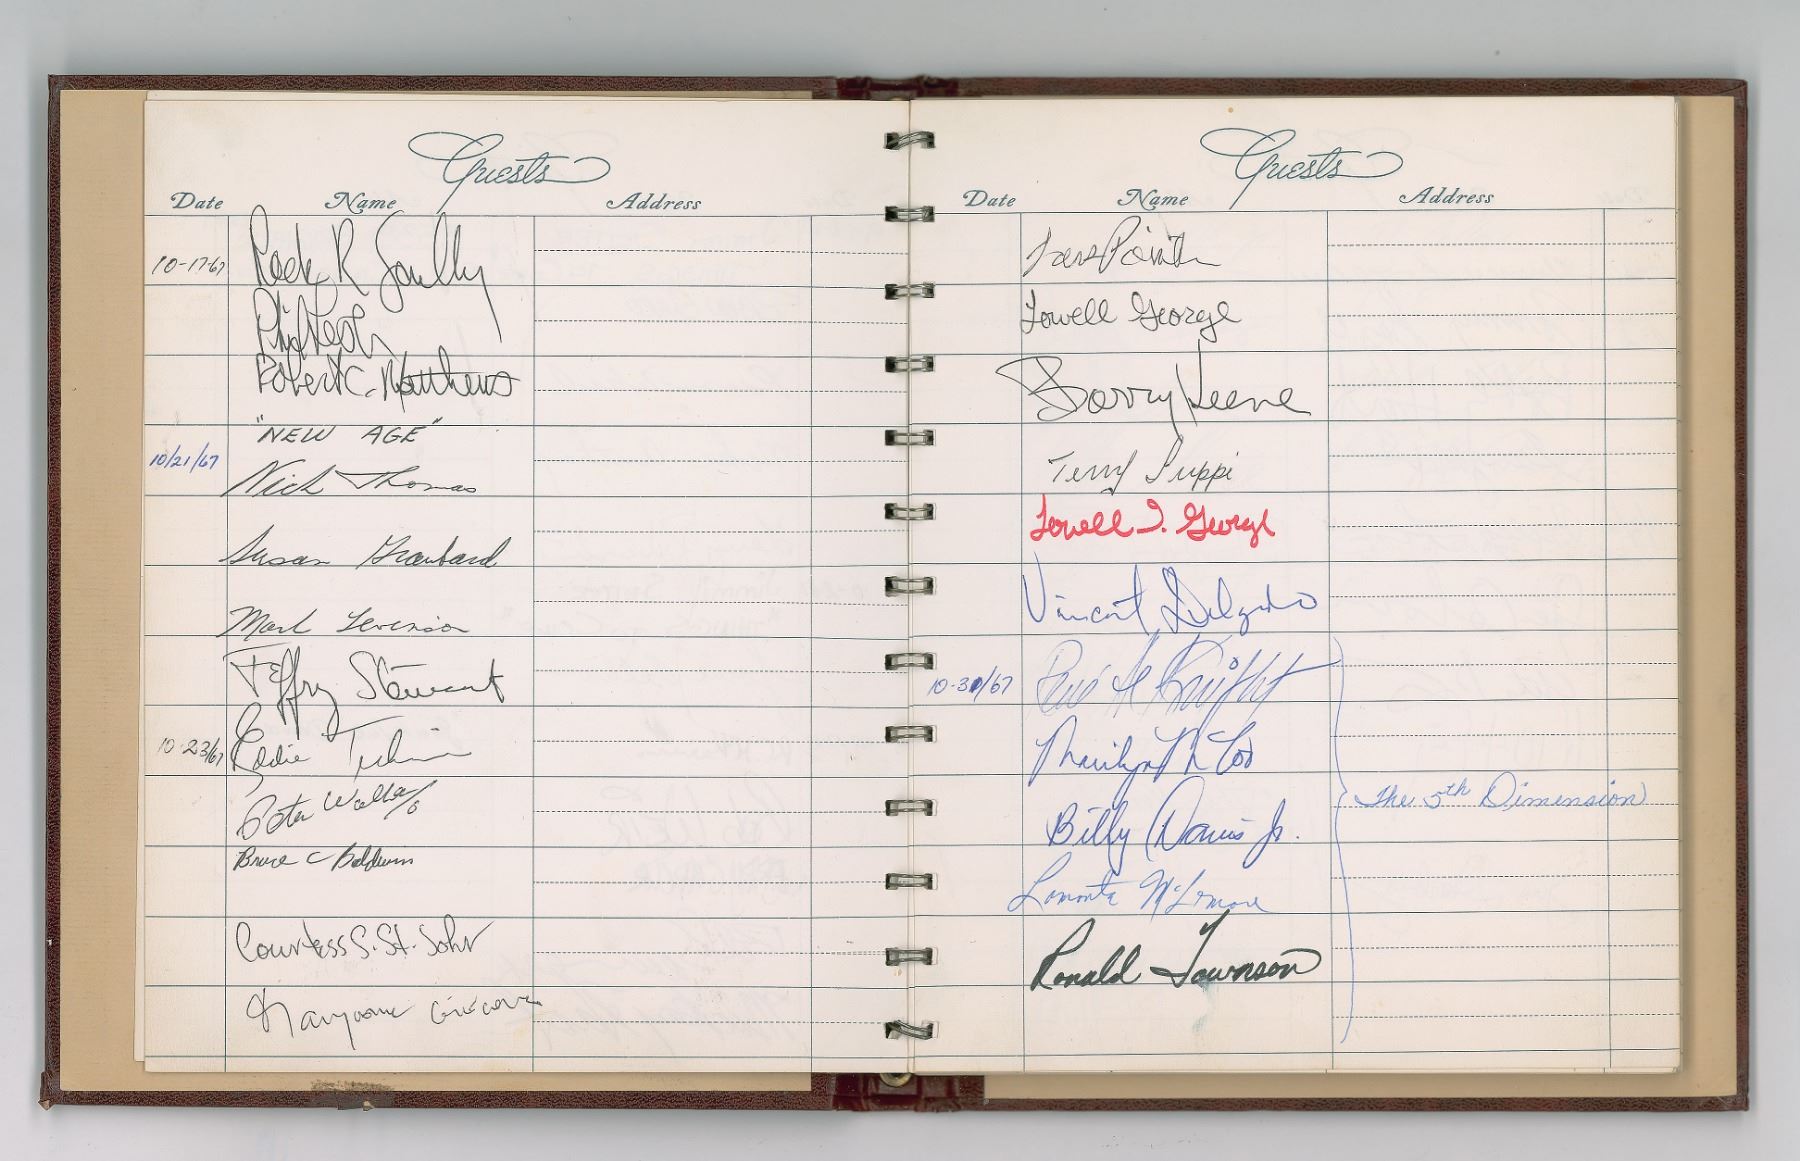 Guests
Date Name Address
10-17-67 Rock R Scully
Phil Lesh
Robert C. Matthews
"NEW AGE"
10/21/67 Nick Thomas
Susan Graubard
Mark Levinson
Jeffry Stewart
10-23/67 Eddie
Peter Walker
Bruce C Baldwin
Countess S. St. John
Guests
Date Name Address
Lars
Lowell George
Barry Keene
Terry Luppi
Lowell T. George
Vincent Delgado
10-30/67 Knight
Marilyn McCoo
Billy Davis Jr.
The 5th Dimension
Lamonte McLemore
Ronald Townson